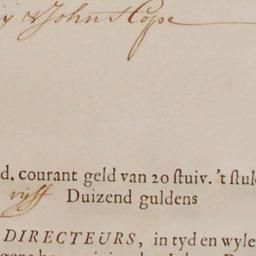 y & John Hope
d. courant geld van 20 ſtuiv. 't ſtuk
vijff Duizend guldens
DIRECTEURS, in tyd en wyle